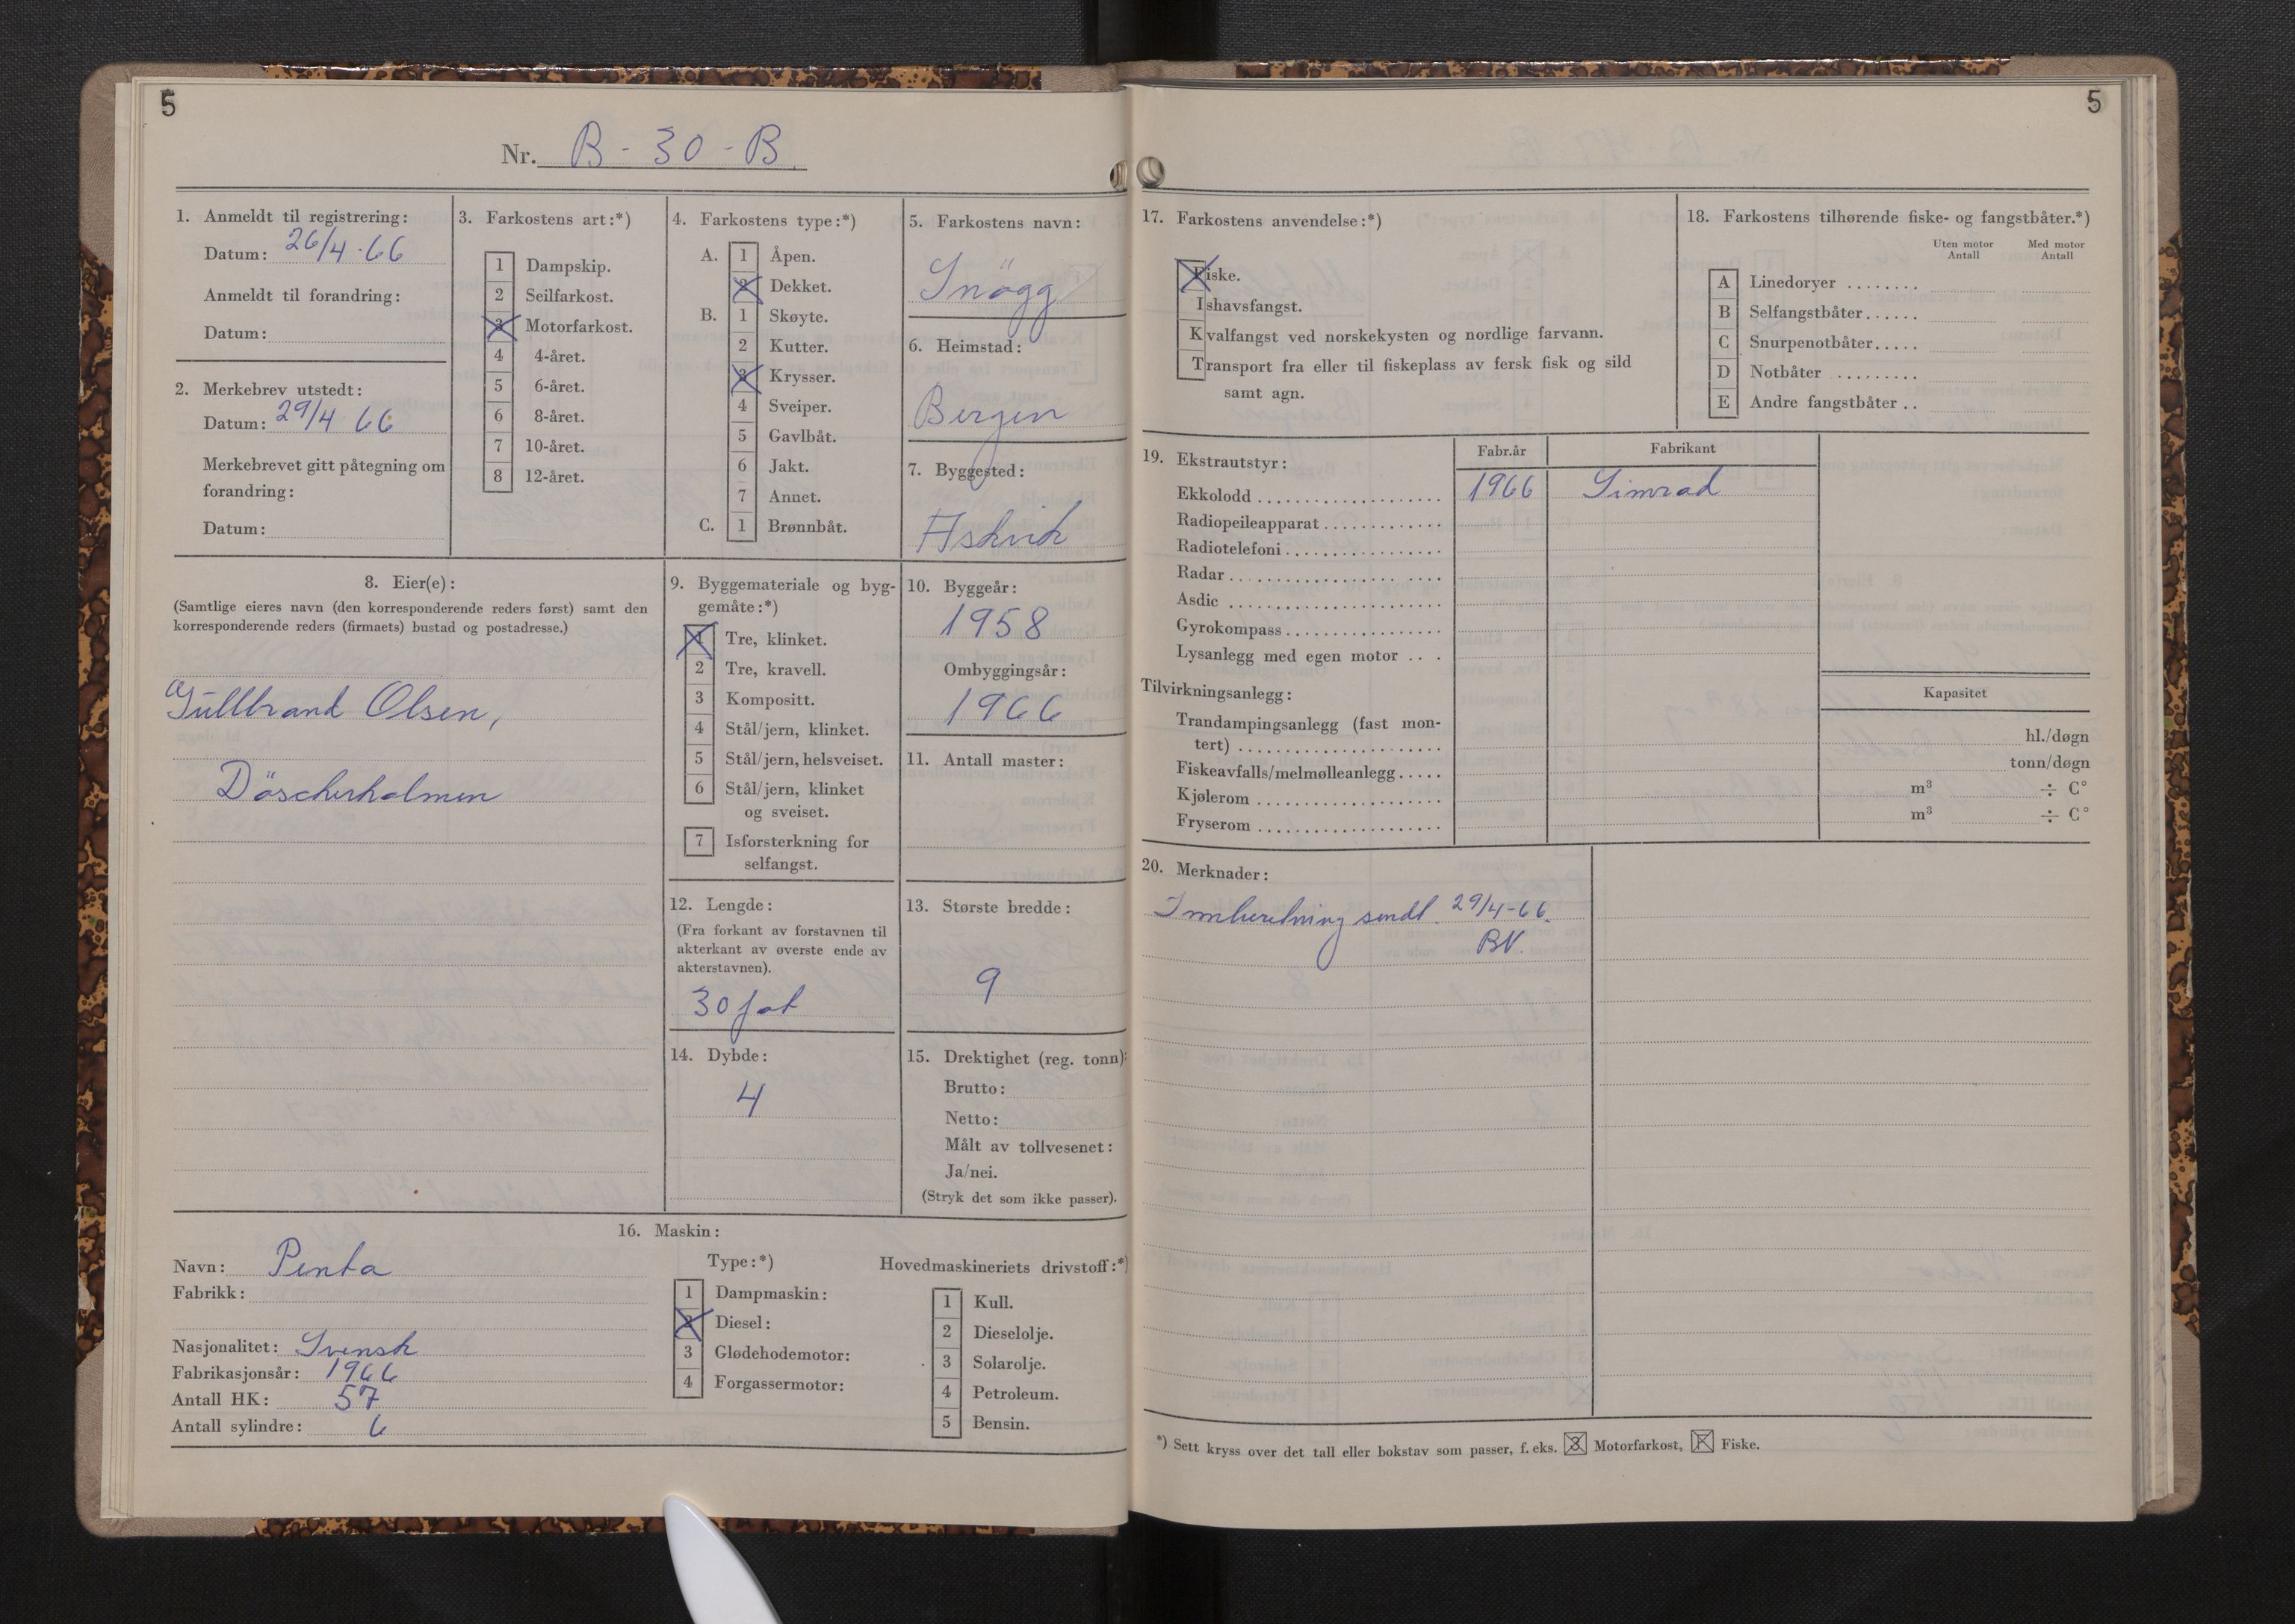 5
Nr. B - 30 - B.
1. Anmeldt til registrering:
Datum: 26/4-66
Anmeldt til forandring:
Datum:
2. Merkebrev utstedt:
Datum: 29/4 66
Merkebrevet gitt påtegning om
forandring:
Datum:
3. Farkostens art:*)
1 Dampskip.
2 Seilfarkost.
3 Motorfarkost.
4 4-året.
5 6-året.
6 8-året.
7 10-året.
8 12-året.
4. Farkostens type:*)
A. 1 Åpen.
2 Dekket.
B. 1 Skøyte.
2 Kutter.
3 Krysser.
4 Sveiper.
5 Gavlbåt.
6 Jakt.
7 Annet.
C. 1 Brønnbåt.
5. Farkostens navn:
Snögg
6. Heimstad:
Bergen
7. Byggested:
Askvik
8. Eier(e):
(Samtlige eieres navn (den korresponderende reders først) samt den
korresponderende reders (firmaets) bustad og postadresse.)
Gullbrand Olsen,
Döscherholmen
9. Byggemateriale og byg-
gemåte:*)
1 Tre, klinket.
2 Tre, kravell.
3 Kompositt.
4 Stål/jern, klinket.
5 Stål/jern, helsveiset.
6 Stål/jern, klinket
og sveiset.
7 Isforsterkning for
selfangst.
10. Byggeår:
1958
Ombyggingsår:
1966
11. Antall master:
12. Lengde:
(Fra forkant av forstavnen til
akterkant av øverste ende av
akterstavnen).
30 fot
13. Største bredde:
9
14. Dybde:
4
15. Drektighet (reg. tonn):
Brutto:
Netto:
Målt av tollvesenet:
Ja/nei.
(Stryk det som ikke passer).
16. Maskin:
Navn: Penta
Fabrikk:
Nasjonalitet: Svensk
Fabrikasjonsår: 1966
Antall HK: 57
Antall sylindre: 6
Type:*)
1 Dampmaskin:
2 Diesel:
3 Glødehodemotor:
4 Forgassermotor:
Hovedmaskineriets drivstoff:*)
1 Kull.
2 Dieselolje.
3 Solarolje.
4 Petroleum.
5 Bensin.
5
17. Farkostens anvendelse:*)
Fiske.
Ishavsfangst.
Kvalfangst ved norskekysten og nordlige farvann.
Transport fra eller til fiskeplass av fersk fisk og sild
samt agn.
18. Farkostens tilhørende fiske- og fangstbåter.*)
Uten motor Med motor
Antall Antall
A Linedoryer ........
B Selfangstbåter......
C Snurpenotbåter.....
D Notbåter .........
E Andre fangstbåter ..
19. Ekstrautstyr: Fabr.år Fabrikant
Ekkolodd .................... 1966 Simrad
Radiopeileapparat .............
Radiotelefoni .................
Radar ........................
Asdic ........................
Gyrokompass .................
Lysanlegg med egen motor ...
Tilvirkningsanlegg: Kapasitet
Trandampingsanlegg (fast mon-
tert) ...................... hl./døgn
Fiskeavfalls/melmølleanlegg ..... tonn/døgn
Kjølerom .................... m³ ÷ C°
Fryserom .................... m³ ÷ C°
20. Merknader:
Innberetning sendt 29/4-66.
BN.
*) Sett kryss over det tall eller bokstav som passer, f. eks. 3 Motorfarkost, F Fiske.